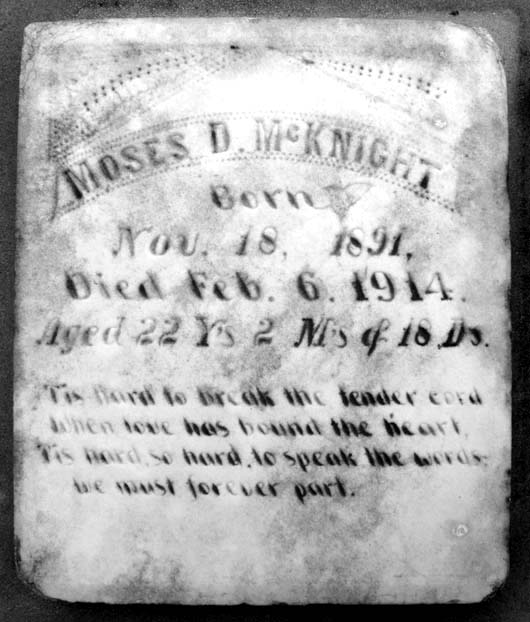 MOSES D. McKNIGHT
Born
Nov. 18, 1891,
Died Feb. 6. 1914.
Aged 22 Ys 2 Ms & 18, Ds.
'Tis hard to break the tender cord
When love has bound the heart,
Tis hard, so hard, to speak the words:
we must forever part.